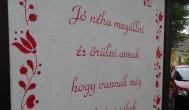 Jó néha megállni
és örülni annak
hogy vannak még